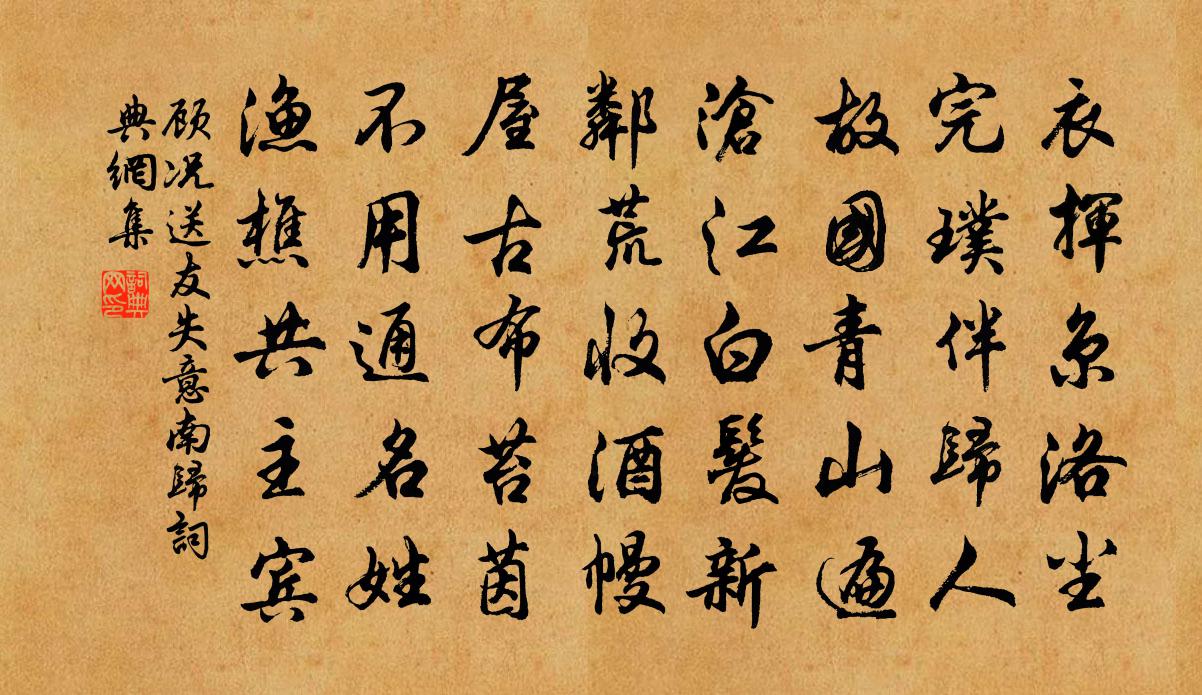 衣揮京洛尘
完璞伴歸人
故國青山遍
滄江白髮新
鄰荒收酒幔
屋古布苔茵
不用通名姓
漁樵共主宾
顾况送友失意南歸詞
典網集
詞典网印